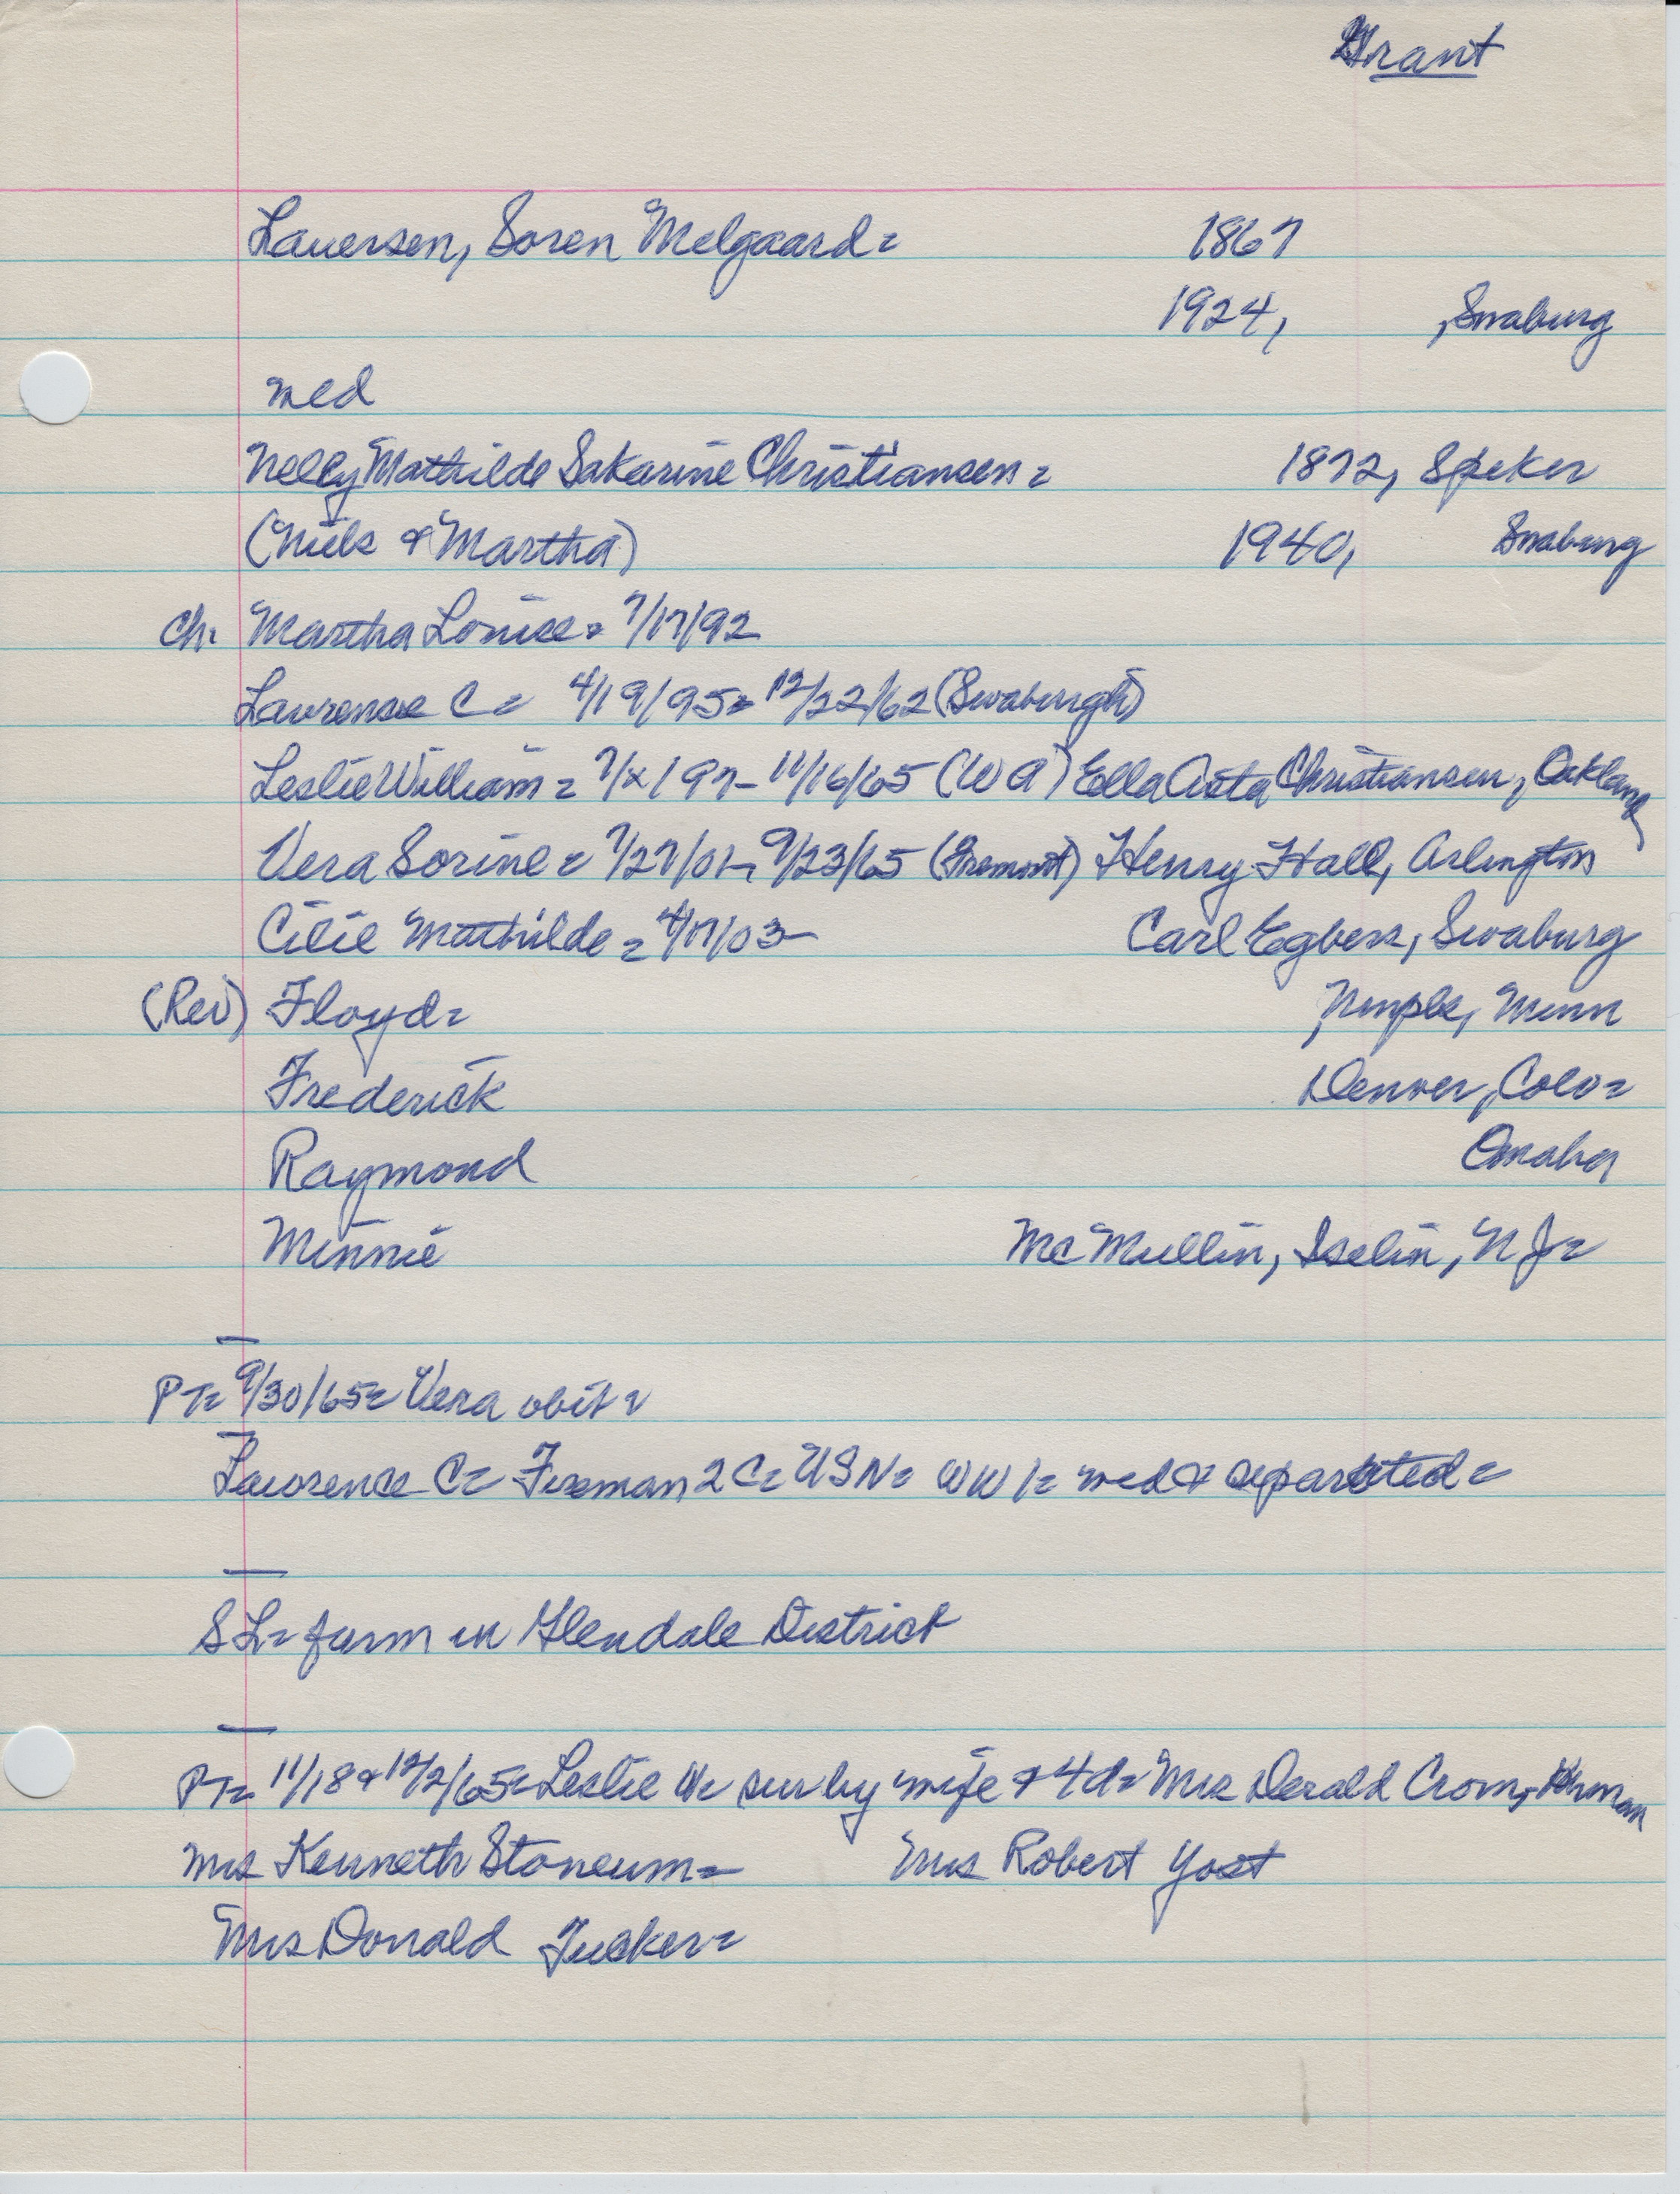 Grant
Lauersen, Soren Melgaard = 1867
1924, , Swaburg
med
Nelly Mathilde Sakarine Christiansen = 1872, Speker
(Niels & Martha) 1940, Swaburg
Ch. Martha Louise = 7/17/92
Lawrence C = 4/19/95 = 12/22/62 (Swaburgh)
Leslie William = 7/x/97 - 11/16/65 (W a) Ella Asta Christiansen, Oakland
Vera Sorine = 7/27/01 - 9/23/65 (Fremont) Henry Hall, Arlington
Cilie Mathilde = 4/17/03 - Carl Egbers, Swaburg
(Rev) Floyd = , Minn
Frederick Denver, Colo =
Raymond Omaha
Minnie McMullin, Iselin, N J =
PT = 9/30/65 = Vera obit =
Lawrence C = Fireman 2 C = USN = WW 1 = med & separated =
S L = farm in Glendale District
PT = 11/18 & 12/2/65 = Leslie W = sur by wife & 4 d = Mrs Derald Crom,
Mrs Kenneth Stoneum = Mrs Robert Yost
Mrs Donald Tucker =